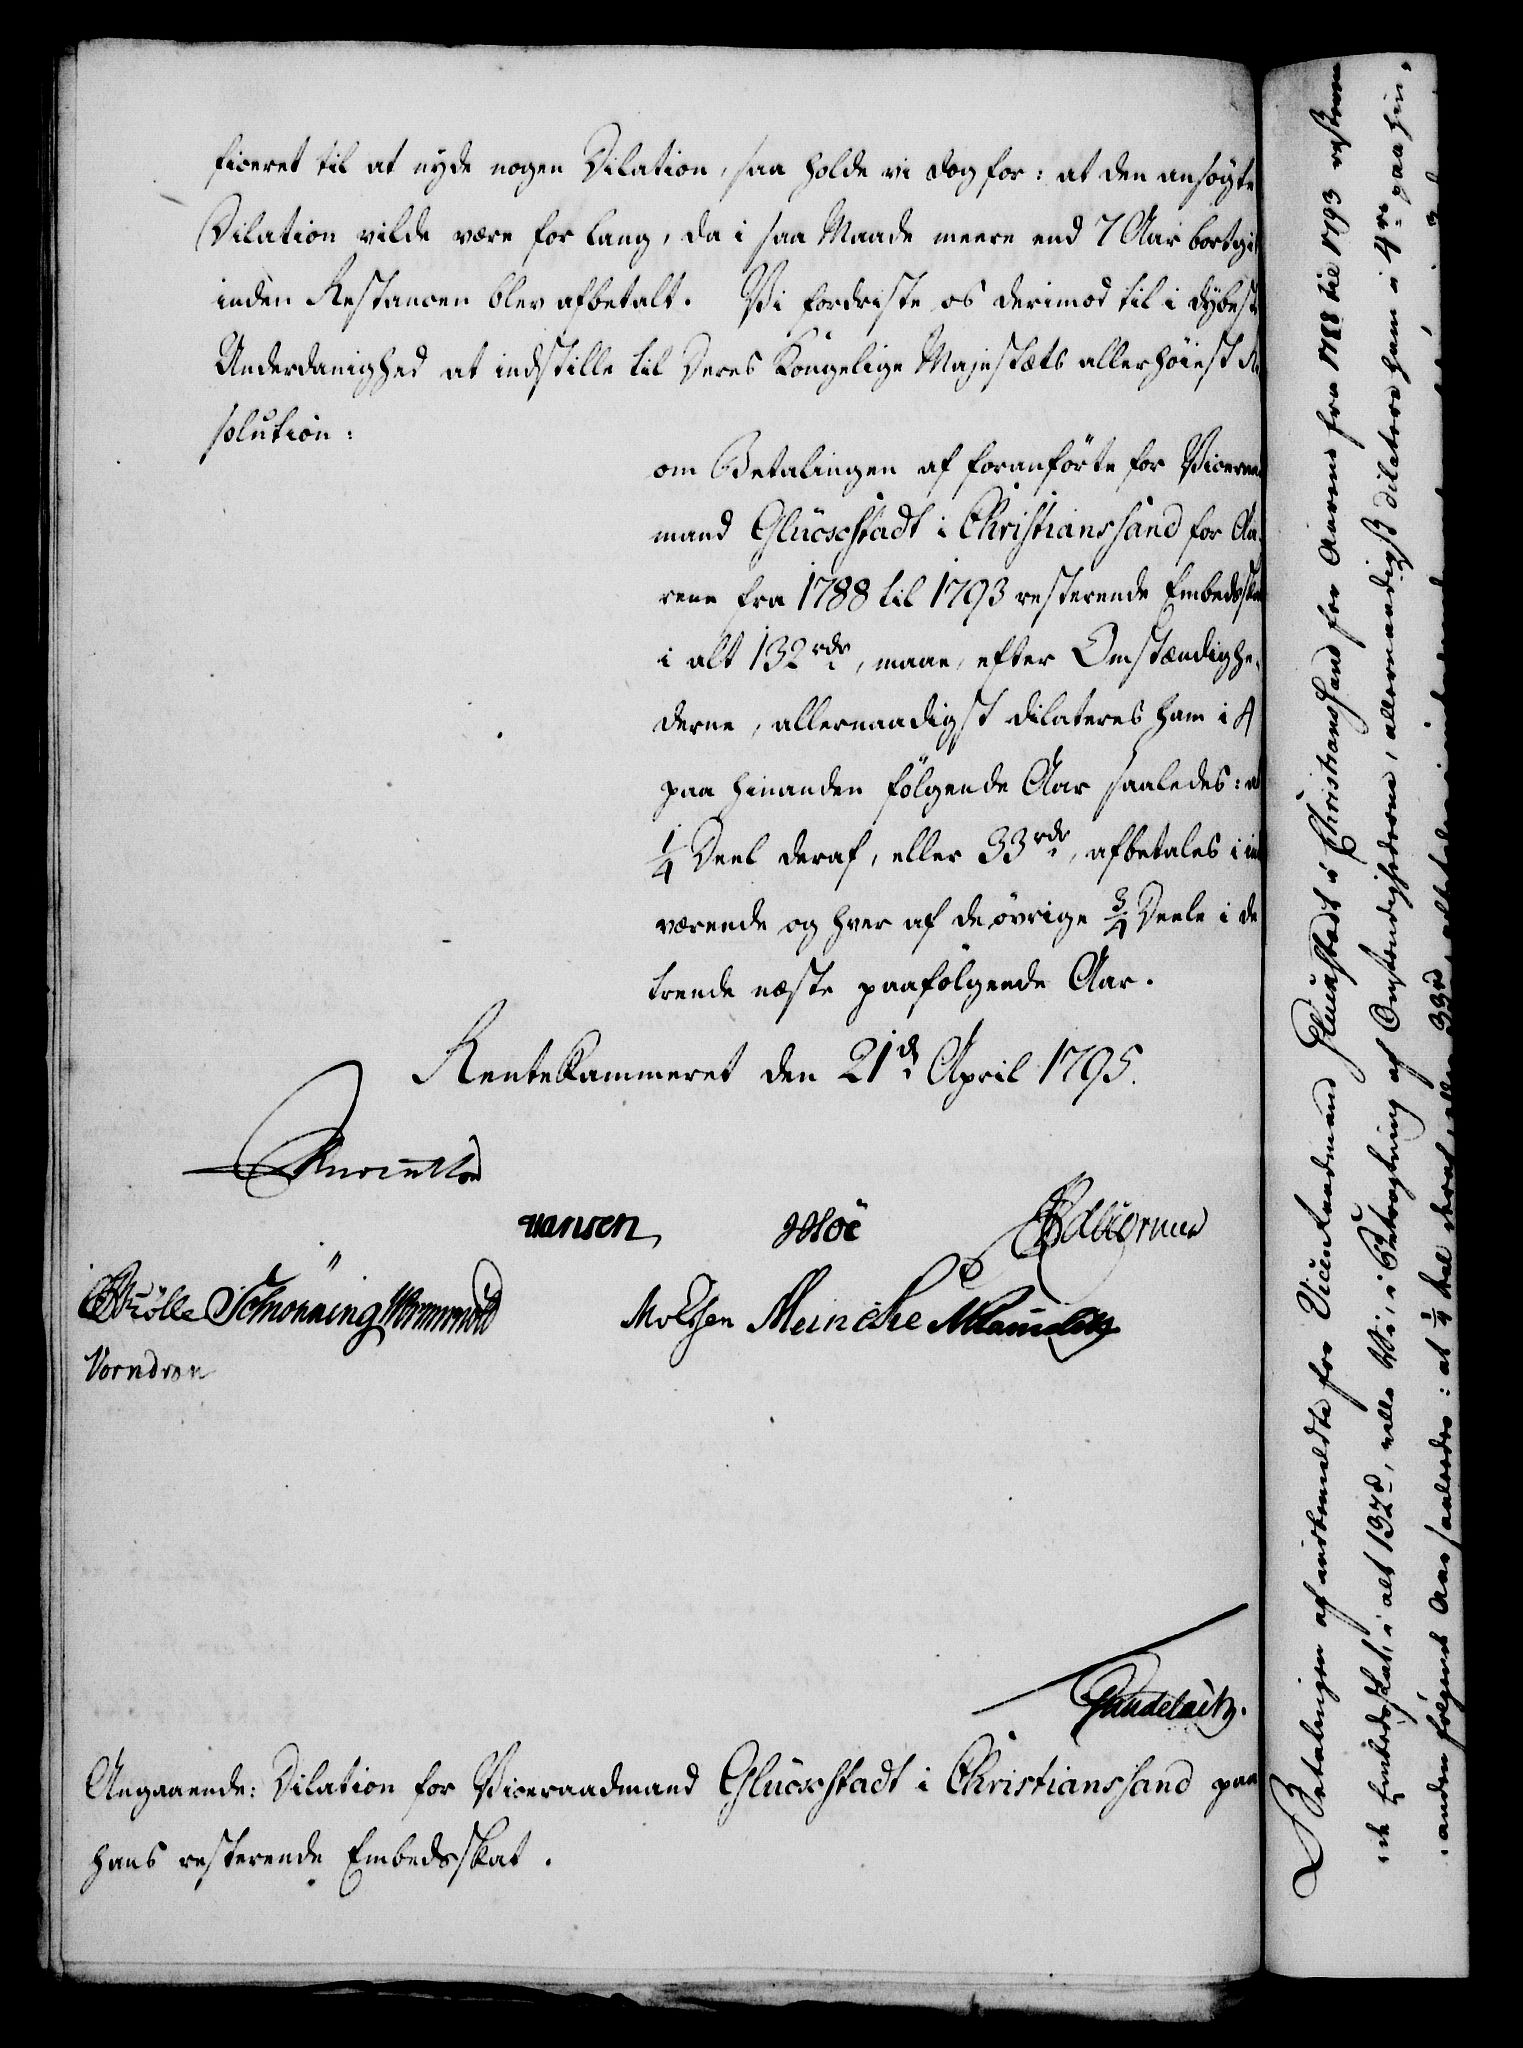 ficeret til at nyde nogen Dilation, saa holde vi dog for: at den ansøgte
Dilation vilde være for lang, da i saa Maade meere end 7 Aar bortgik
inden Restancen blev afbetalt. Vi fordriste os derimod til i dybeste
Underdanighed at indstille til Deres Kongelige Majestæts allerhøieste Re
solution:
om Betalingen af foranførte for Viceraad
mand Glücschstadt i Christianssand for Aa,
rene fra 1788 til 1793 resterende Embedsskat
i alt 132 rdr, maae, efter Omstændighe,
derne, allernaadigst dilateres ham i 4
paa hinanden følgende Aar saaledes: at
1/4 Deel deraf, eller 33 rdr, afbetales i in
værende og hver af de øvrige 3/4 Deele i de
trende næste paafølgende Aar.
Rentekammeret den 21de April 1795.
Hansen Hoë
Schönning Wormskiold
Moltzen Meincke
Vorndran
Angaaende: Dilation for Viceraadmand Glücschstadt i Christianssand paa
hans resterende Embedsskat.
Betalingen af anmeldte for Viceraadmand Glückstadt i Christianssand for Aarene fra 1788 til 1793 resteren
de Embedsskat, i alt 132 rd, ville Vi, i Betragtning af Omstændighederne, allernaadigst dilatere ham i 4re paa hin,
anden følgende Aar saaledes: at 1/4 deel deraf, eller 33 rd,